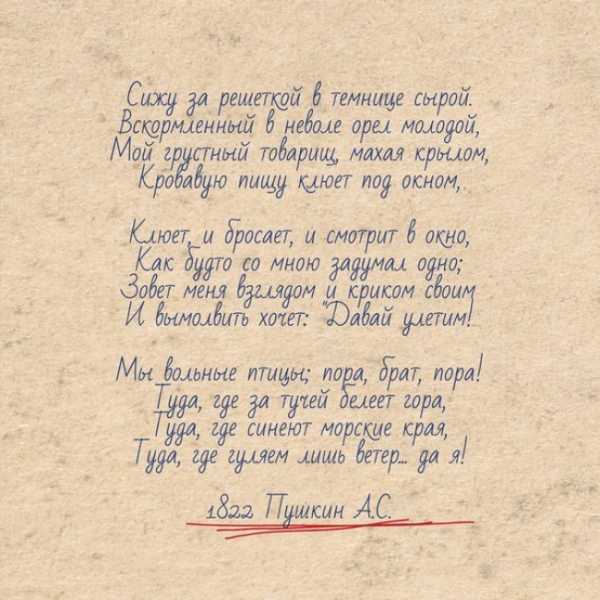 Сижу за решеткой в темнице сырой.
Вскормленный в неволе орел молодой,
Мой грустный товарищ, махая крылом,
Кровавую пищу клюет под окном,
Клюет, и бросает, и смотрит в окно,
Как будто со мною задумал одно;
Зовет меня взглядом и криком своим
И вымолвить хочет: "Давай улетим!
Мы вольные птицы; пора, брат, пора!
Туда, где за тучей белеет гора,
Туда, где синеют морские края,
Туда, где гуляем лишь ветер... да я!
1822 Пушкин А.С.